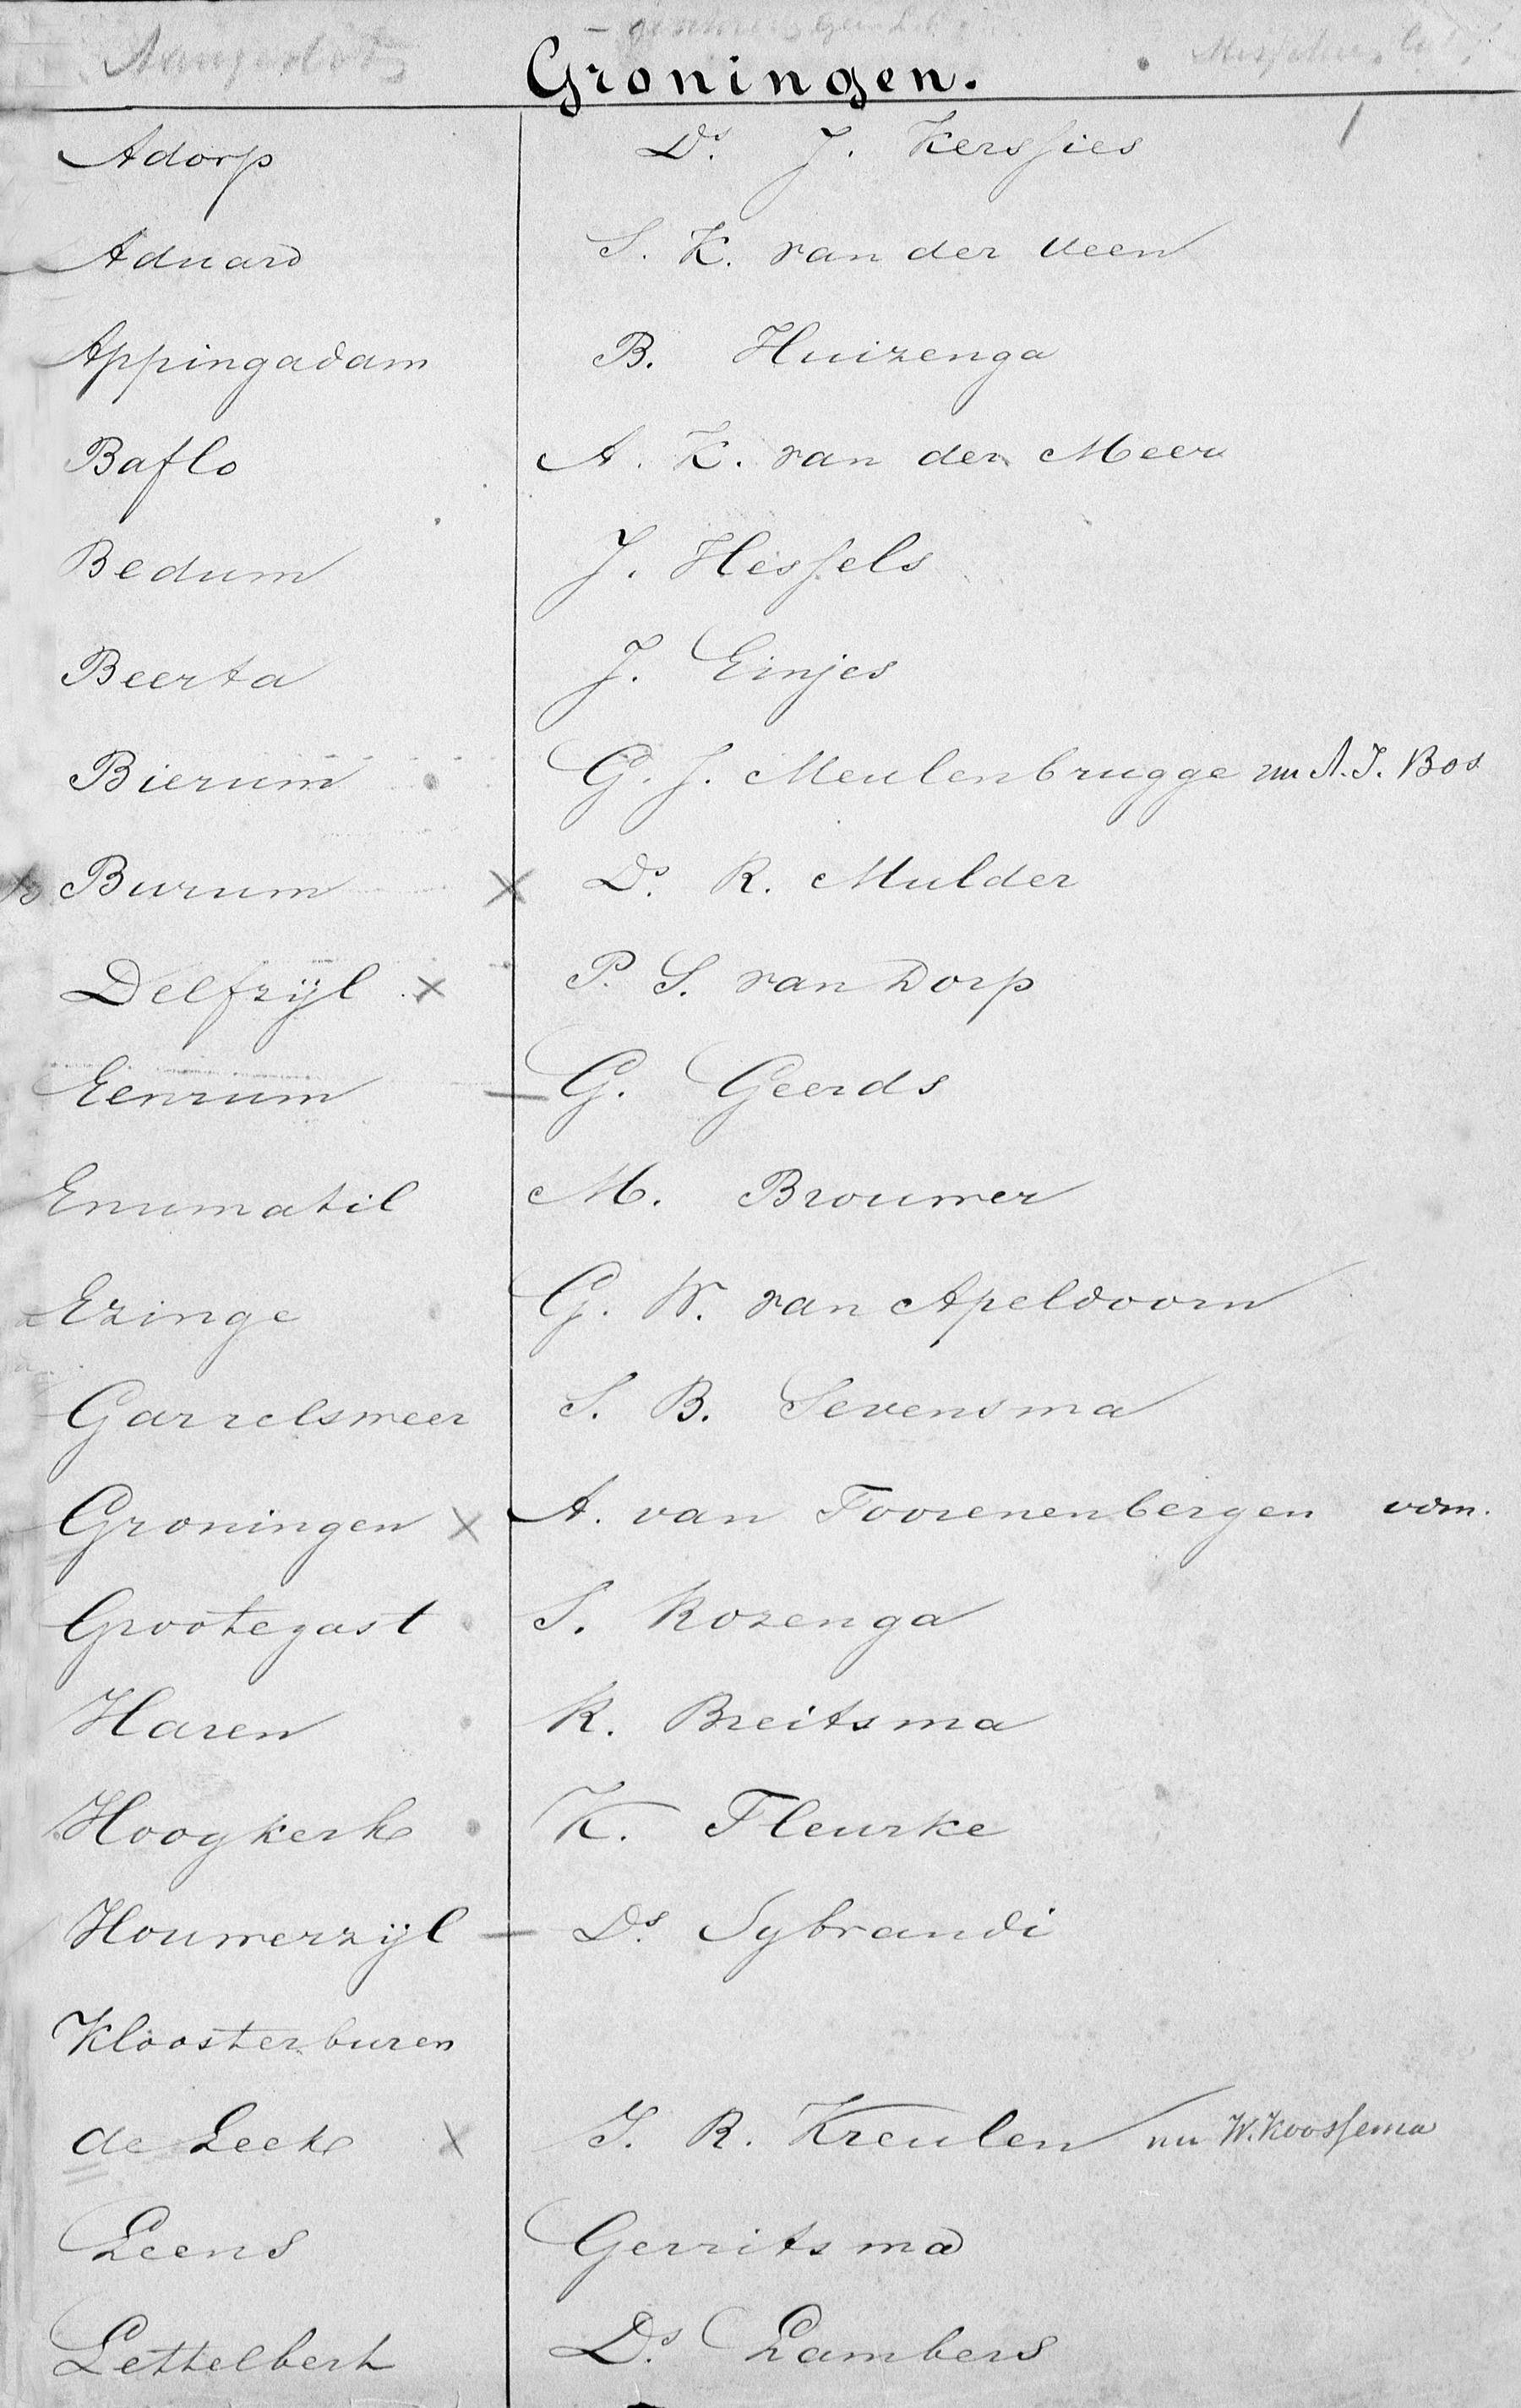 Groningen.
1
Adorp Ds. J. Kerssies
Aduard S. K. van der Veen
Appingadam B. Huizenga
Baflo A. K. van der Meer
Bedum J. Hessels
Beerta J. Einjes
Bierum G. J. Meulenbrugge nu A. J. Bos
Burum × Ds. R. Mulder
Delfzijl × P. S. van Dorp
Eenrum — G. Geerds
Enumatil M. Brouwer
Ezinge G. W. van Apeldoorn
Garrelsweer S. B. Sevensma
Groningen × A. van Toorenenbergen vdm.
Grootegast S. Rozenga
Haren R. Breitsma
Hoogkerk K. Fleurke
Houwerzijl — Ds. Sybrandi
Kloosterburen
de Leek × J. R. Kreulen nu W. Koossema
Leens Gerritsma
Lettelbert Ds. Lambers